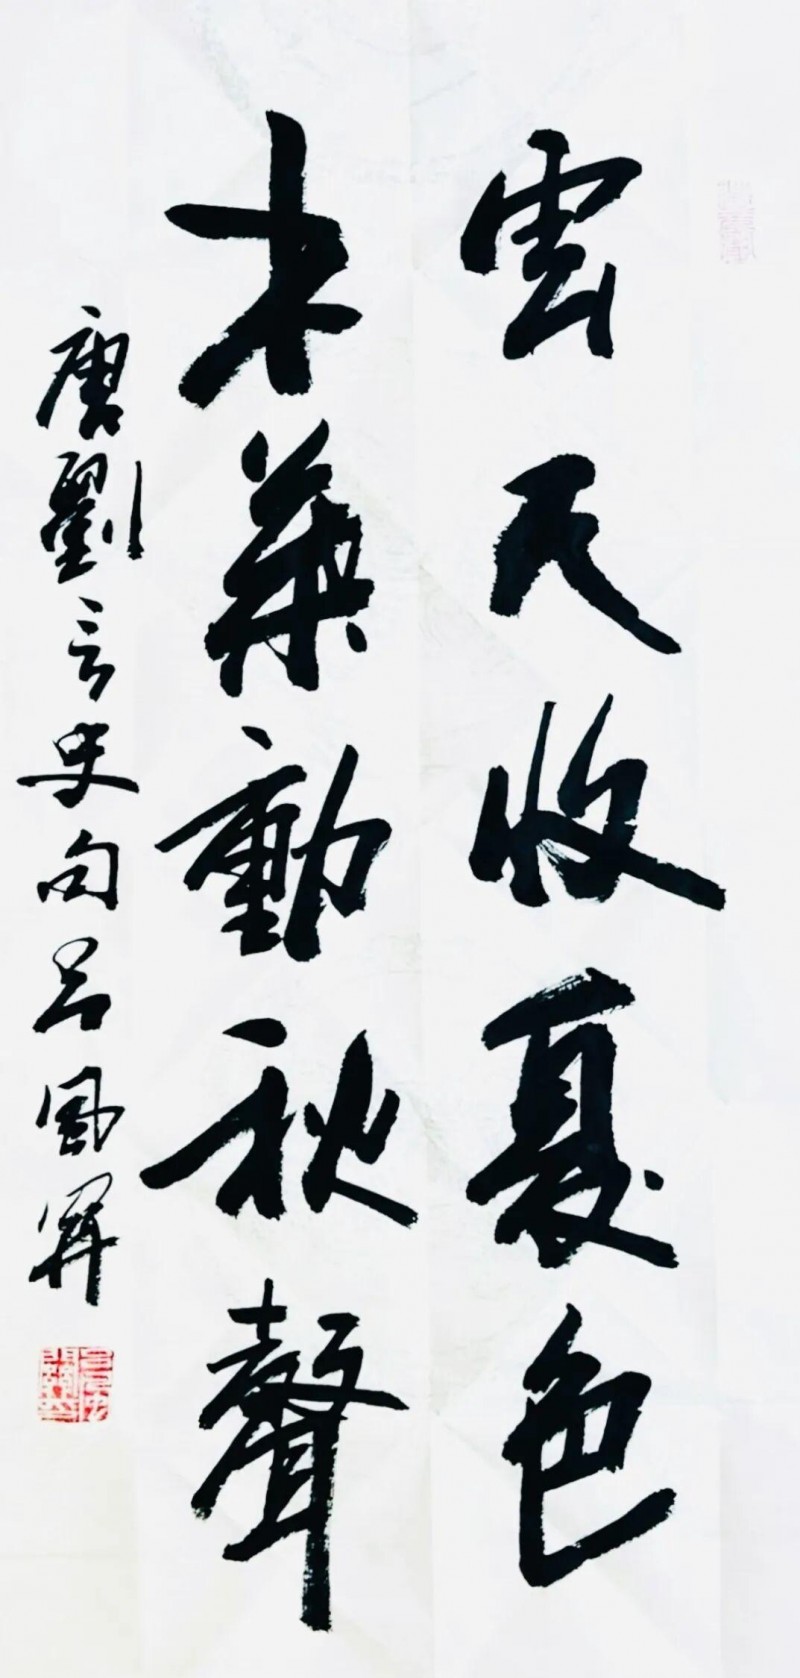 雲天收夏色
木葉動秋聲
唐劉言史句吕風